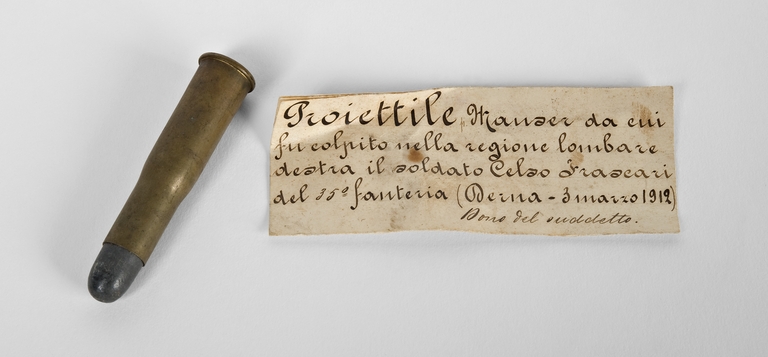 Proiettile Mauser da cui
fu colpito nella regione lombare
destra il soldato Celso Frascari
del 35º fanteria (Derna - 3 marzo 1912)
Dono del suddetto.